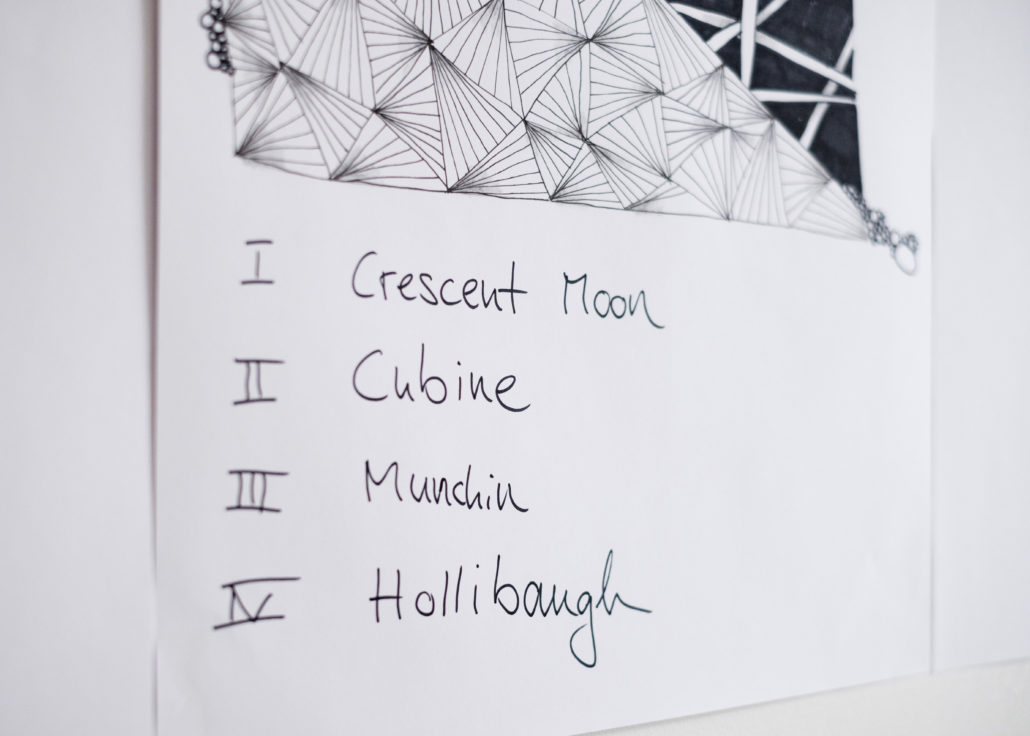 I Crescent Moon
II Cubine
III Munchin
IV Hollibaugh